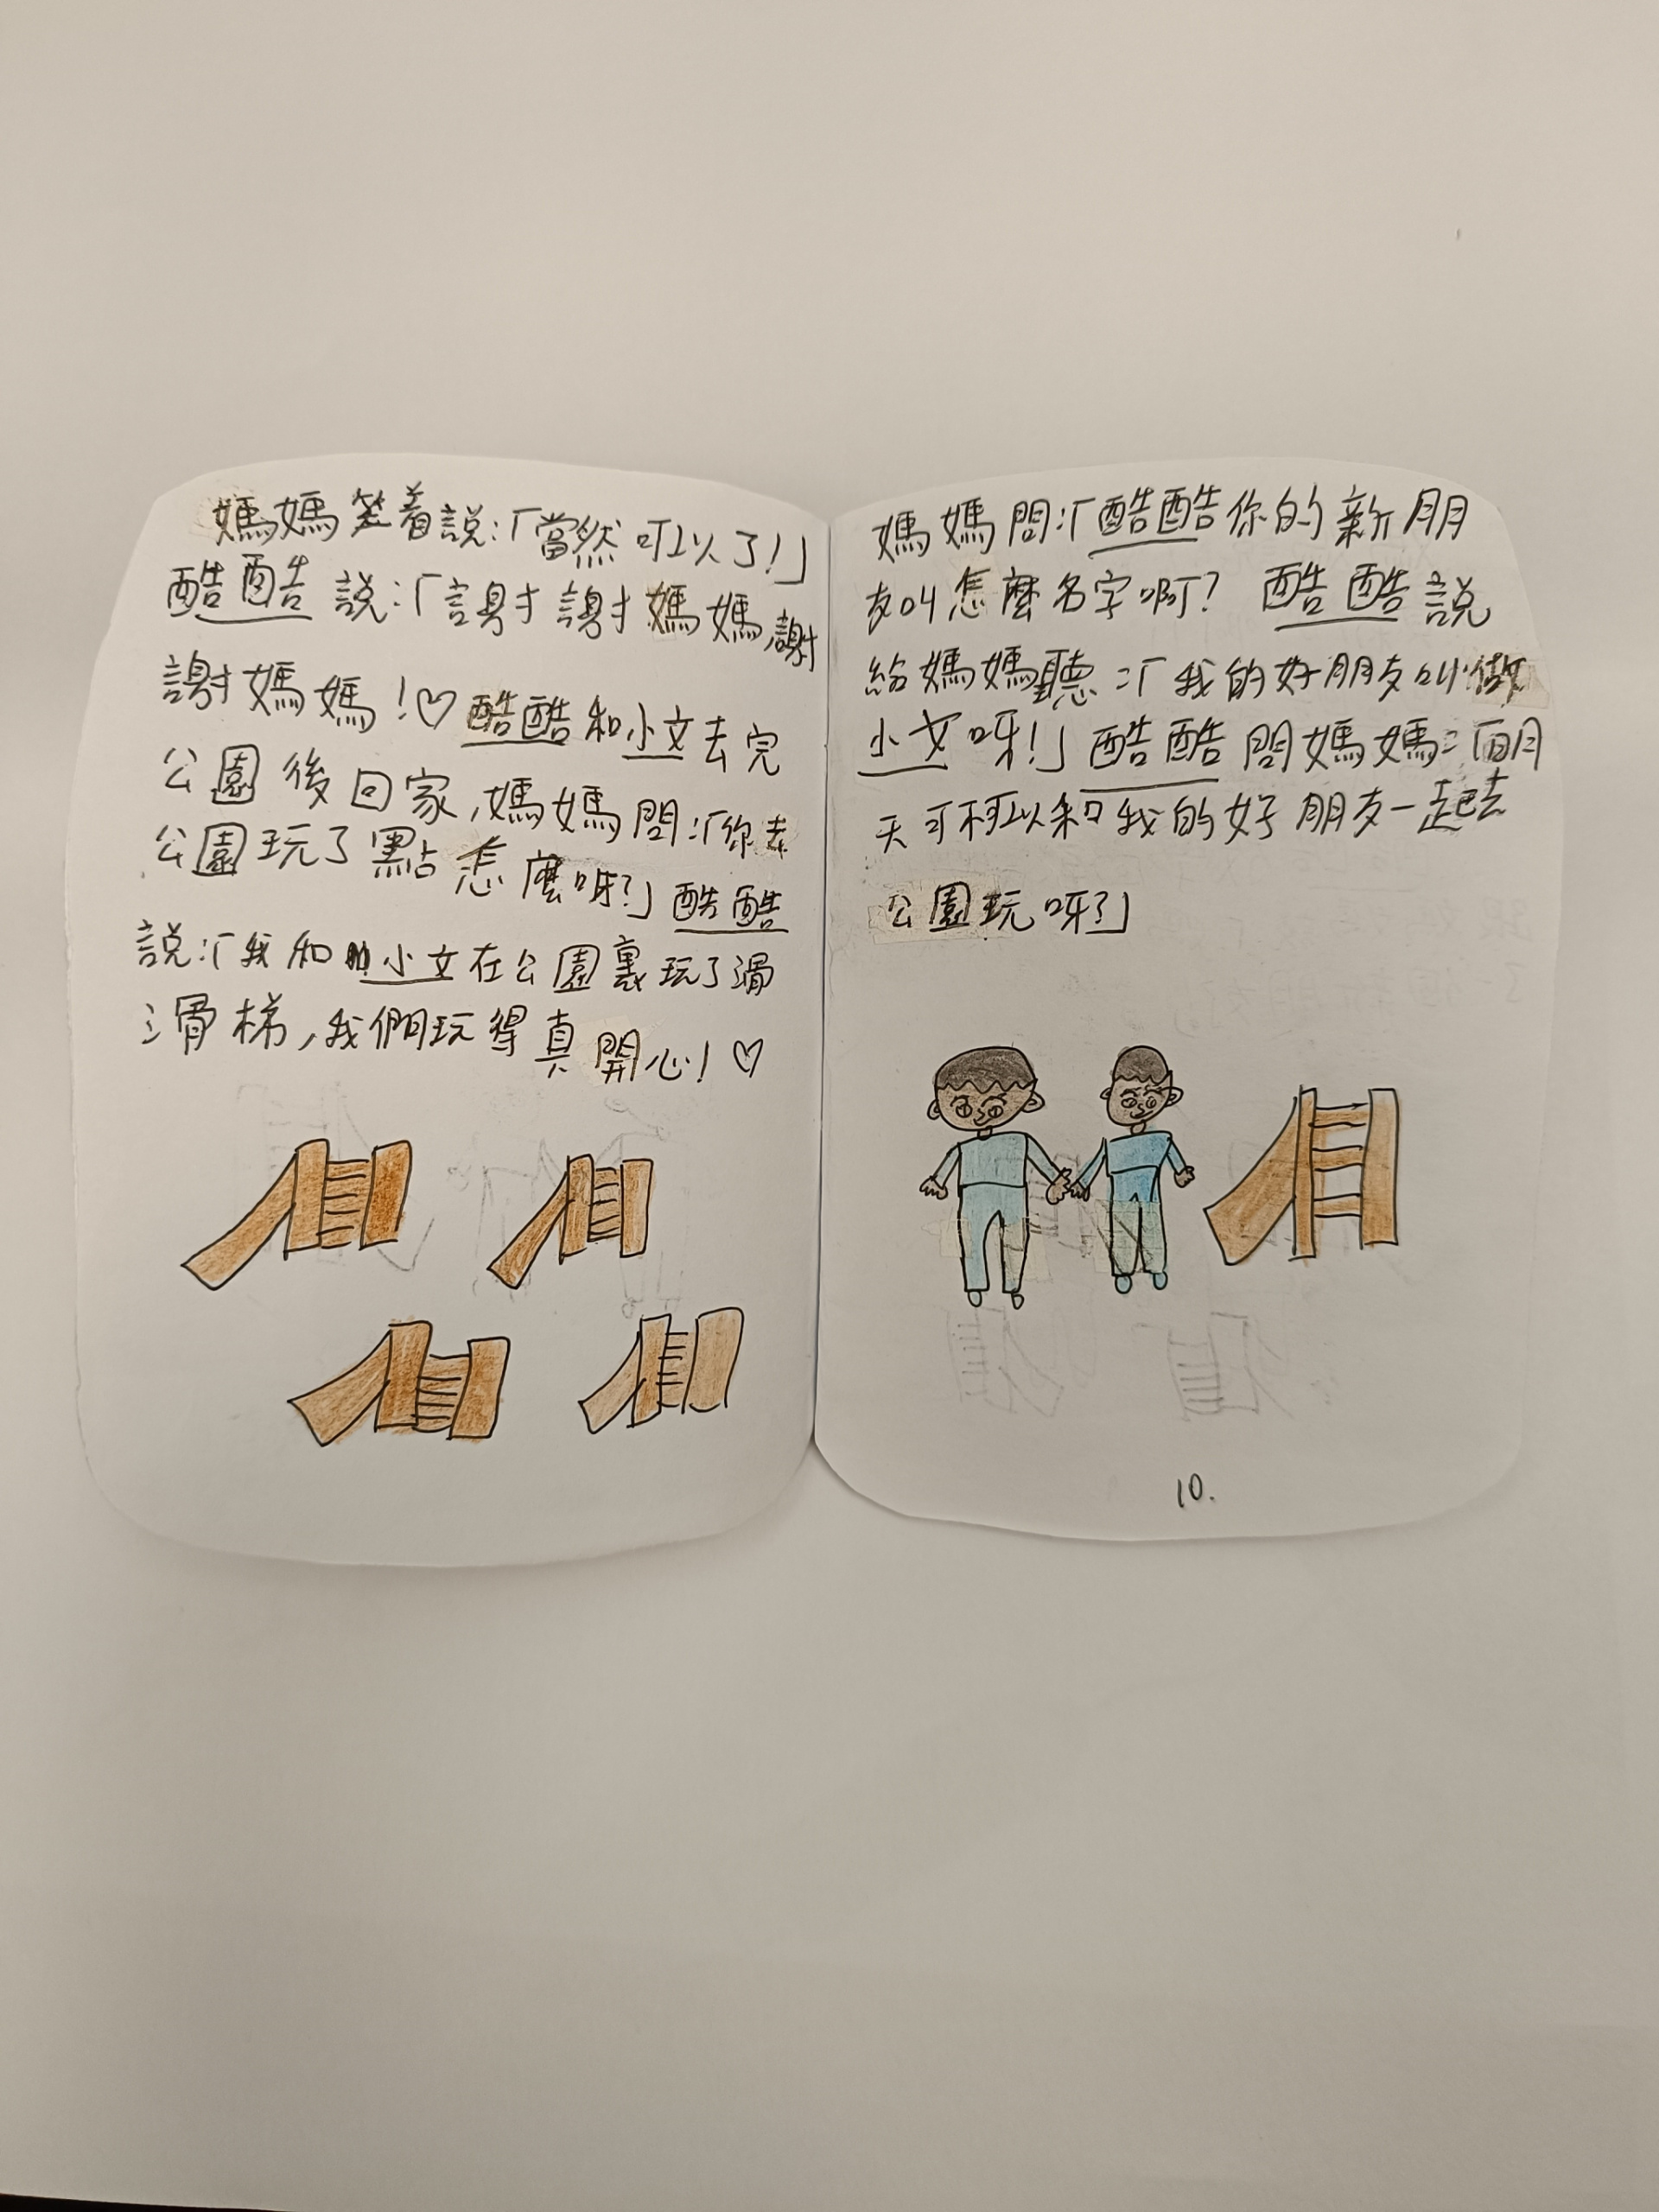 媽媽笑着說:「當然可以了!」
酷酷說:「謝謝媽媽,謝
謝媽媽!♡酷酷和小文去完
公園後回家,媽媽問:「你去
公園玩了點怎麼呀?」酷酷
說:「我和小文在公園裏玩了滑
滑梯,我們玩得真開心!♡
媽媽問:「酷酷你的新朋
友叫怎麼名字啊? 酷酷說
給媽媽聽:「我的好朋友叫做
小文呀!」酷酷問媽媽:「明
天可不可以和我的好朋友一起去
公園玩呀?」
10.